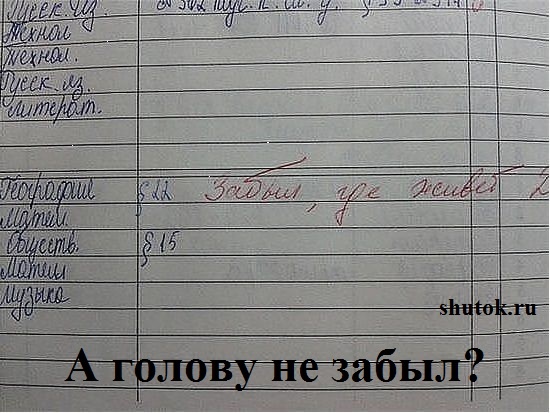 Русск. яз. §
Технол
Технол.
Русск. яз.
Литерат.
География § 22 Забыл, где живёт
Матем.
Обществ. § 15
Матем
Музыка
shutok.ru
А голову не забыл?